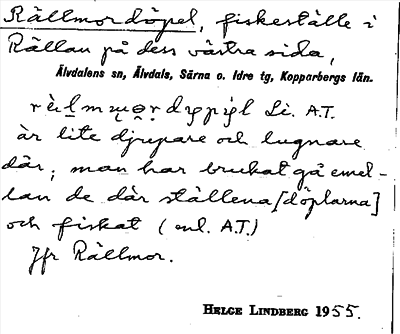 Rällmordöpel, fiskeställe i
Rällan på den västra sida,
Älvdalens sn, Älvdals, Särna o. Idre tg, Kopparbergs län.
Li. A.T.
är lite djupare och lugnare
där; man har brukat gå emel-
lan de där ställena [döplarna]
och fiskat (enl. A.T.)
Jfr Rällmor.
HELGE LINDBERG 1955.